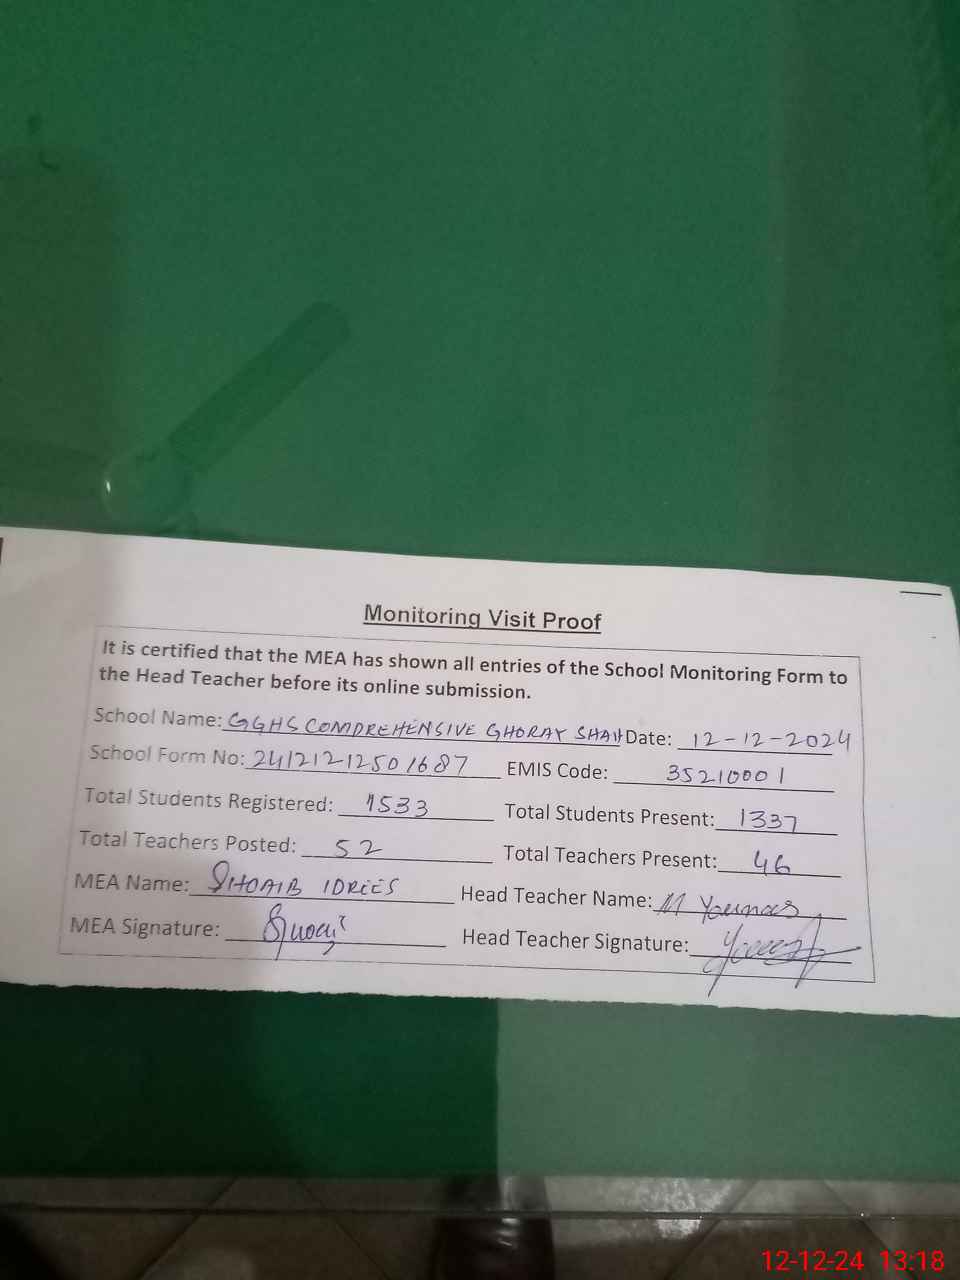 Monitoring Visit Proof
It is certified that the MEA has shown all entries of the School Monitoring Form to
the Head Teacher before its online submission.
School Name: GGHS COMPREHENSIVE GHORAY SHAH Date: 12-12-2024
School Form No: 24121212501687 EMIS Code: 35210001
Total Students Registered: 1533 Total Students Present: 1337
Total Teachers Posted: 52 Total Teachers Present: 46
MEA Name: SHOAIB IDREES Head Teacher Name: M Younas
MEA Signature: Head Teacher Signature:
12-12-24 13:18